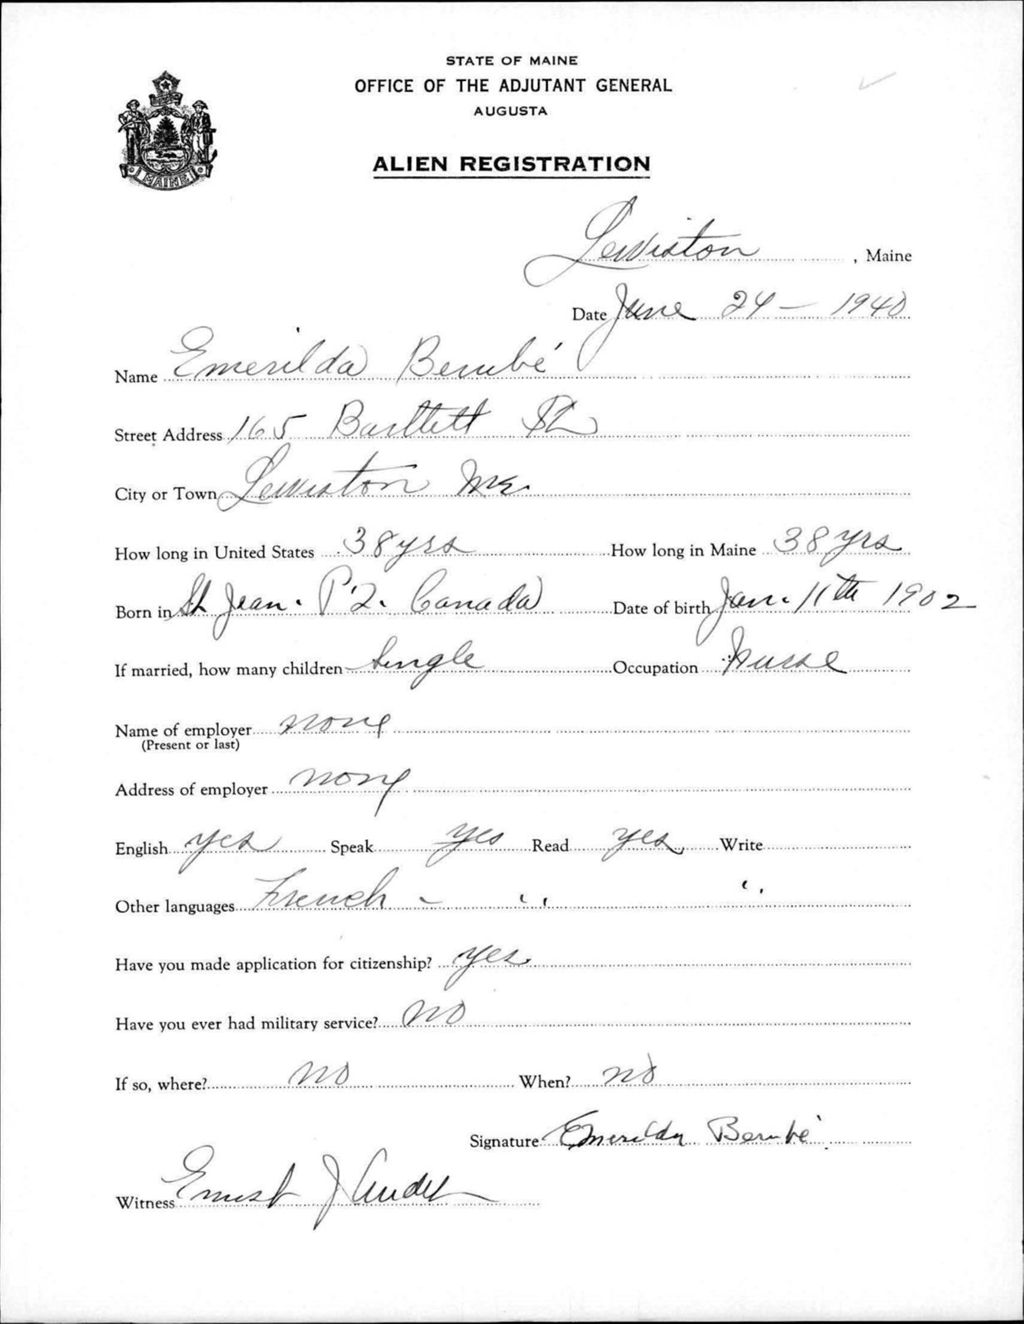 STATE OF MAINE
OFFICE OF THE ADJUTANT GENERAL
AUGUSTA
ALIEN REGISTRATION
MAINE
Lewiston, Maine
Date June 24 — 1940
Name Emerilda Berubé
Street Address 165 Bartlett St
City or Town Lewiston Me.
How long in United States 38 yrs How long in Maine 38 yrs
Born in St Jean. P.Q. Canada Date of birth Jan. 11th 1902
If married, how many children Single Occupation Nurse
Name of employer none
(Present or last)
Address of employer none
English yes Speak yes Read yes Write
Other languages French - " "
Have you made application for citizenship? yes.
Have you ever had military service? no
If so, where? no When? no
Signature Emerilda Berubé
Witness Ernest J